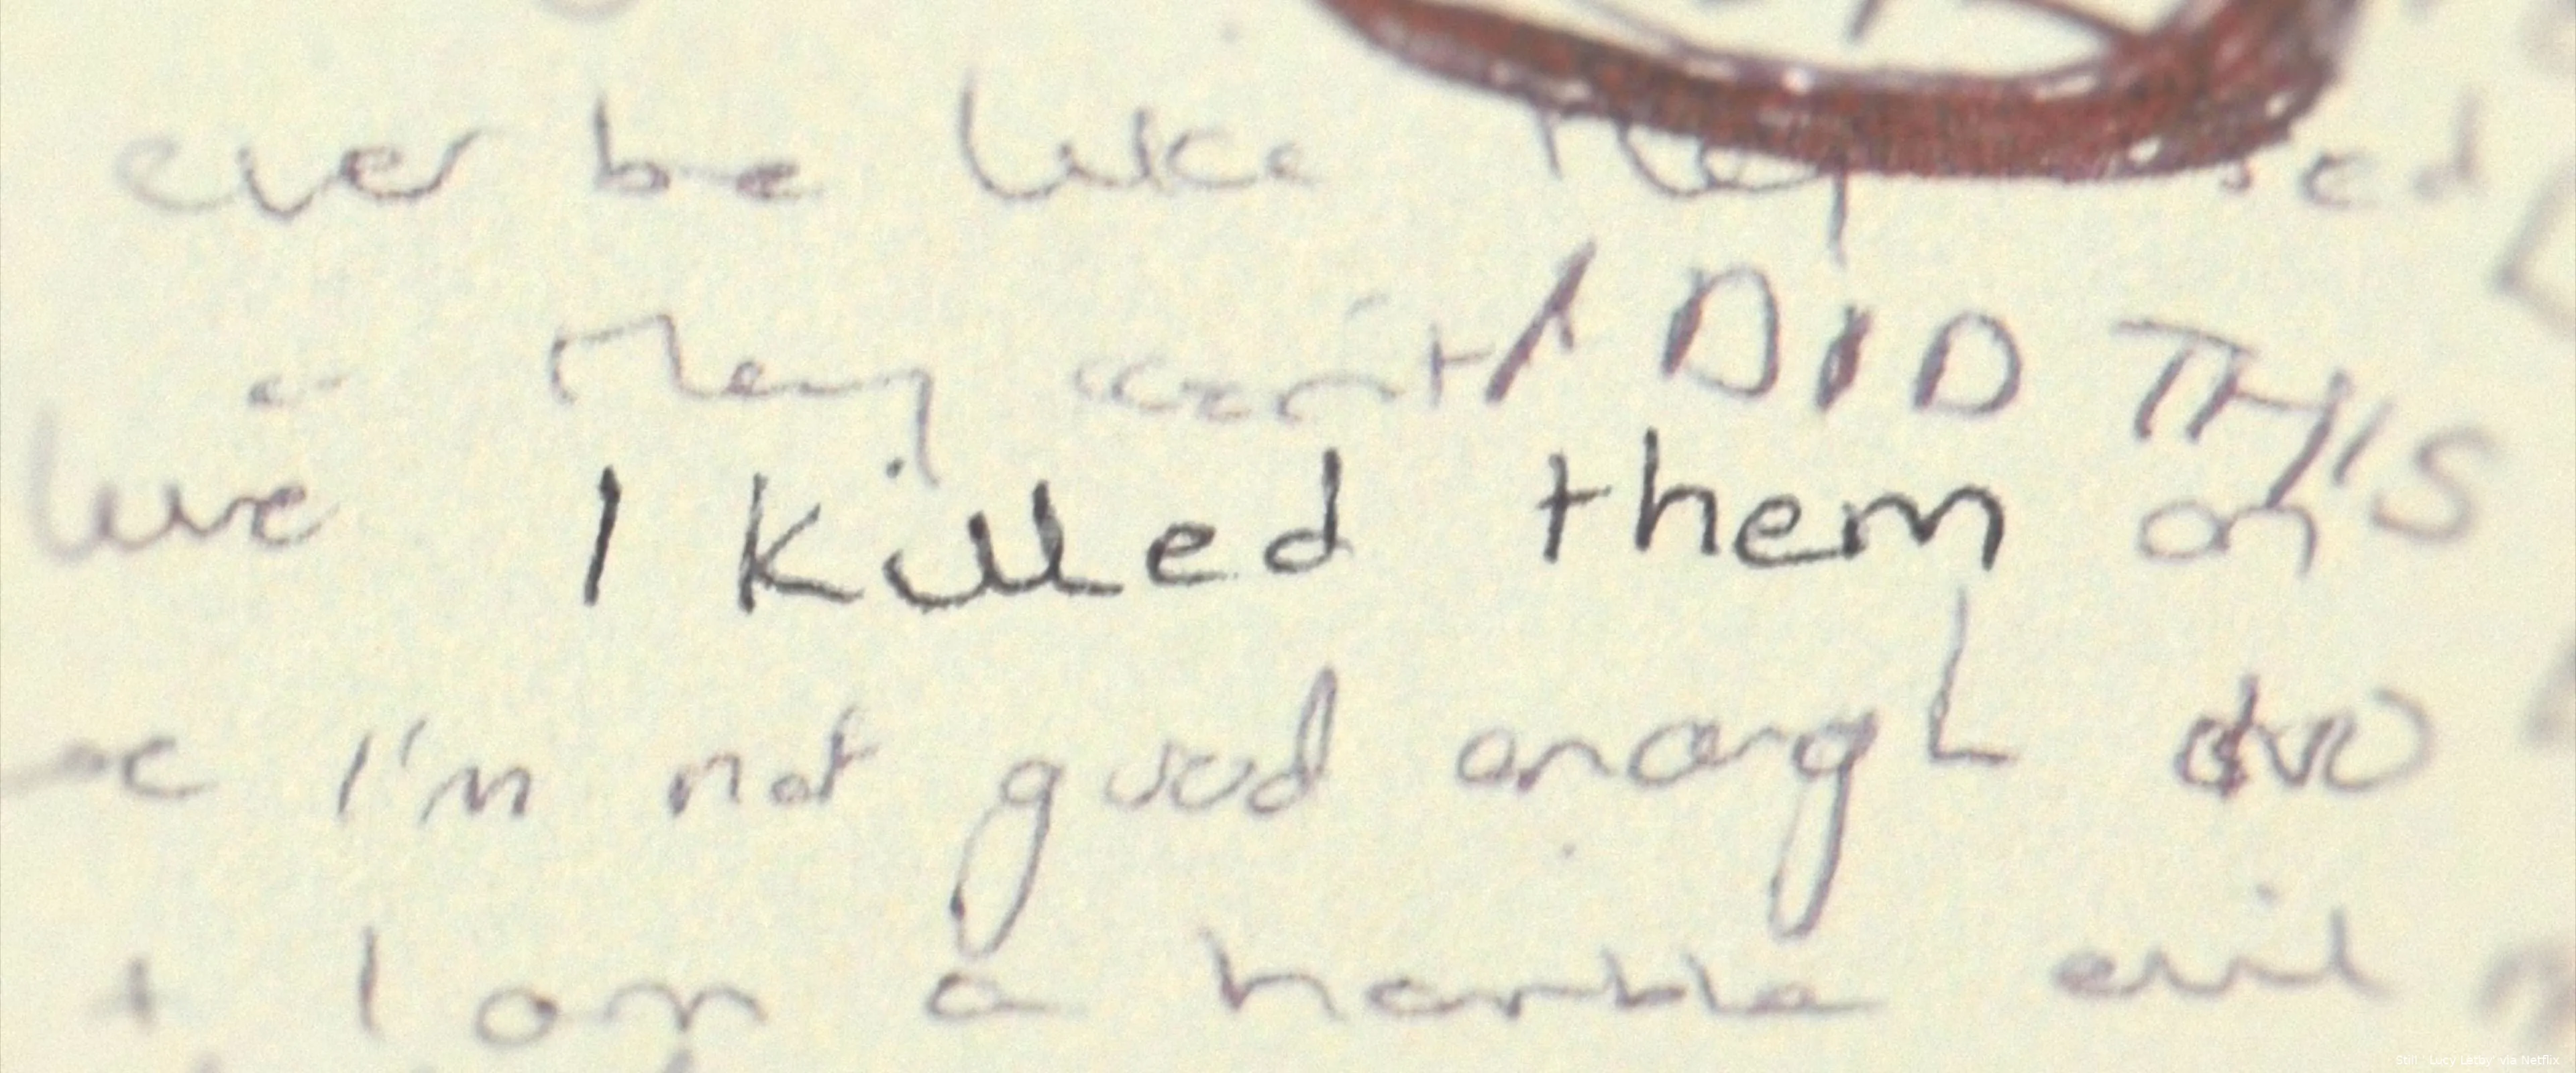 ever be like they
they won't I DID THIS
live I killed them on
I'm not good enough
+ I am a horrible evil
Still 'Lucy Letby' via Netflix